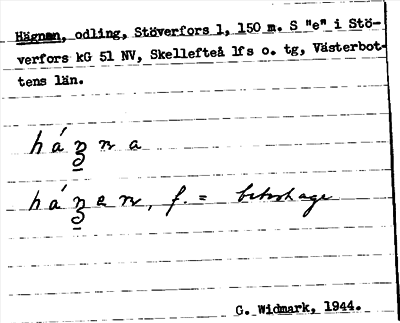 Hägnan, odling, Stöverfors 1, 150 m. S "e" i Stö-
verfors kG 51 NV, Skellefteå lfs o. tg, Västerbot-
tens län.
f. = beteshage
G. Widmark, 1944.